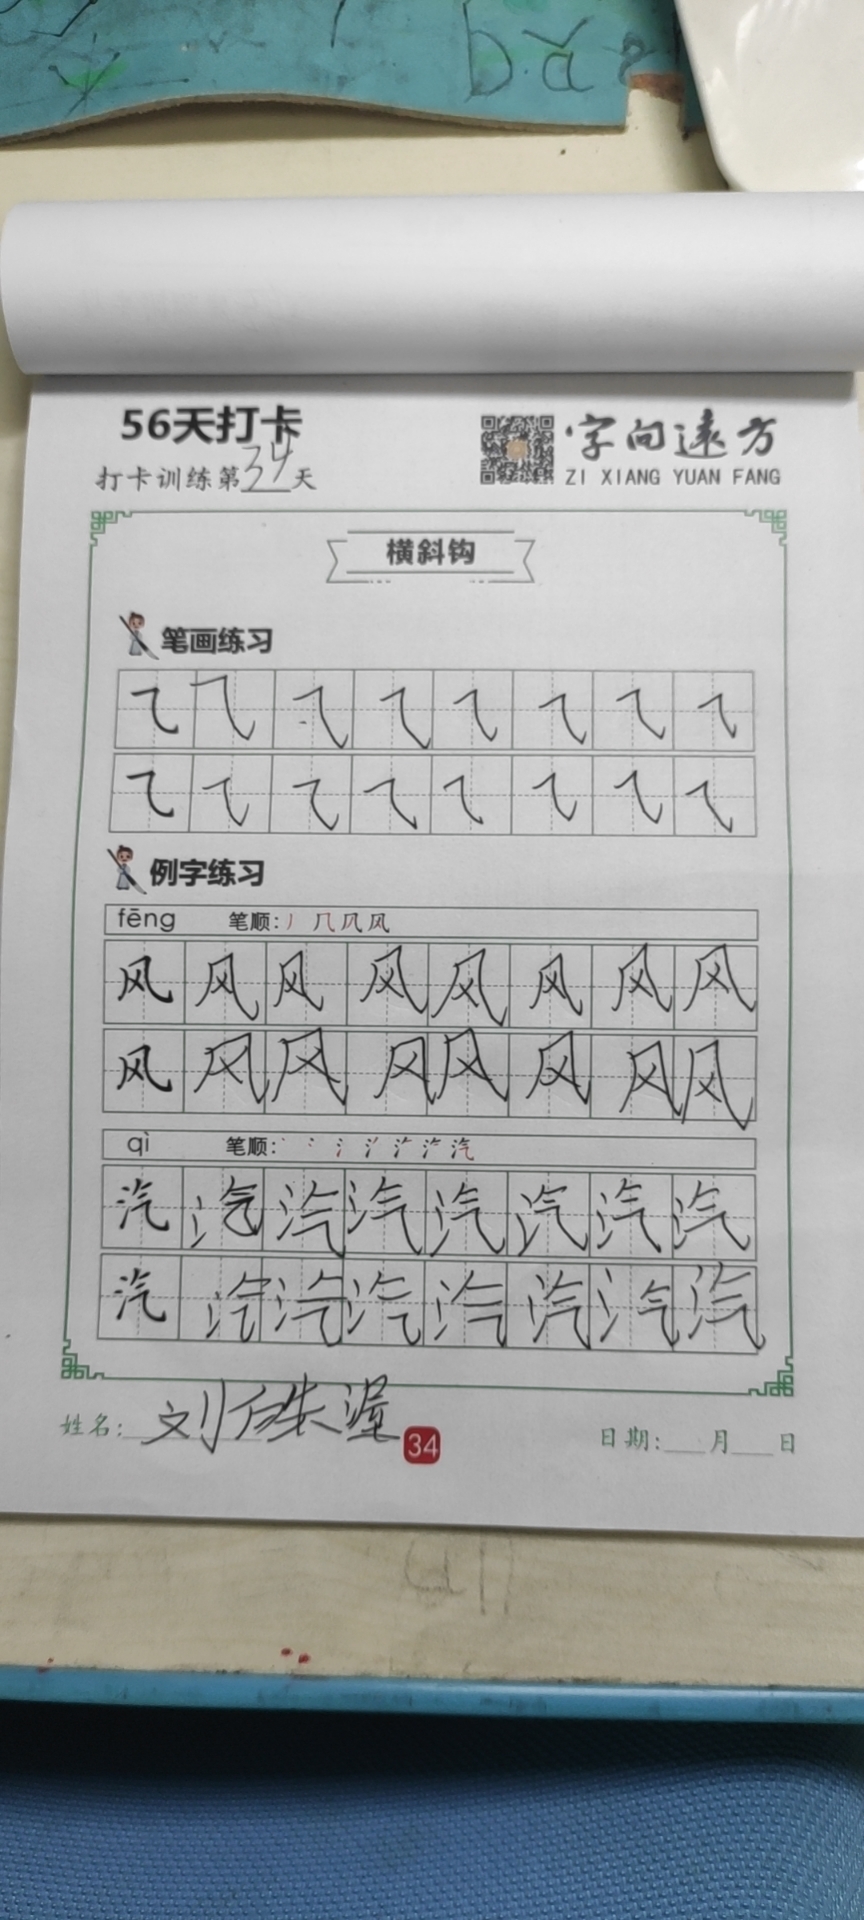 56天打卡
打卡训练第34天
字向远方
ZI XIANG YUAN FANG
横斜钩
笔画练习
⺄ ⺄ ⺄ ⺄ ⺄ ⺄ ⺄ ⺄
⺄ ⺄ ⺄ ⺄ ⺄ ⺄ ⺄ ⺄
例字练习
fēng 笔顺:丿 几 凤 风
风 风 风 风 风 风 风 风
风 风 风 风 风 风 风 风
qì 笔顺:
汽 汽 汽 汽 汽 汽 汽 汽
汽 汽 汽 汽 汽 汽 汽 汽
姓名:刘
34
日期:___月___日